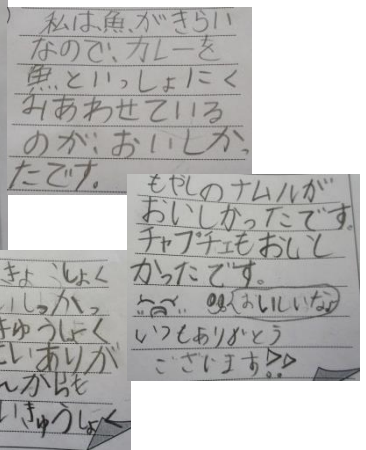 私は魚がきらい
なので、カレーを
魚といっしょにく
みあわせている
のが、おいしかっ
たです。
もやしのナムルが
おいしかったです。
チャプチェもおしと
かったです。
おいしいな
いつもありがとう
ございます!!
きょ
しょく
いしっかっ
きゅうしょく
ありが
からも
いきゅうしょく